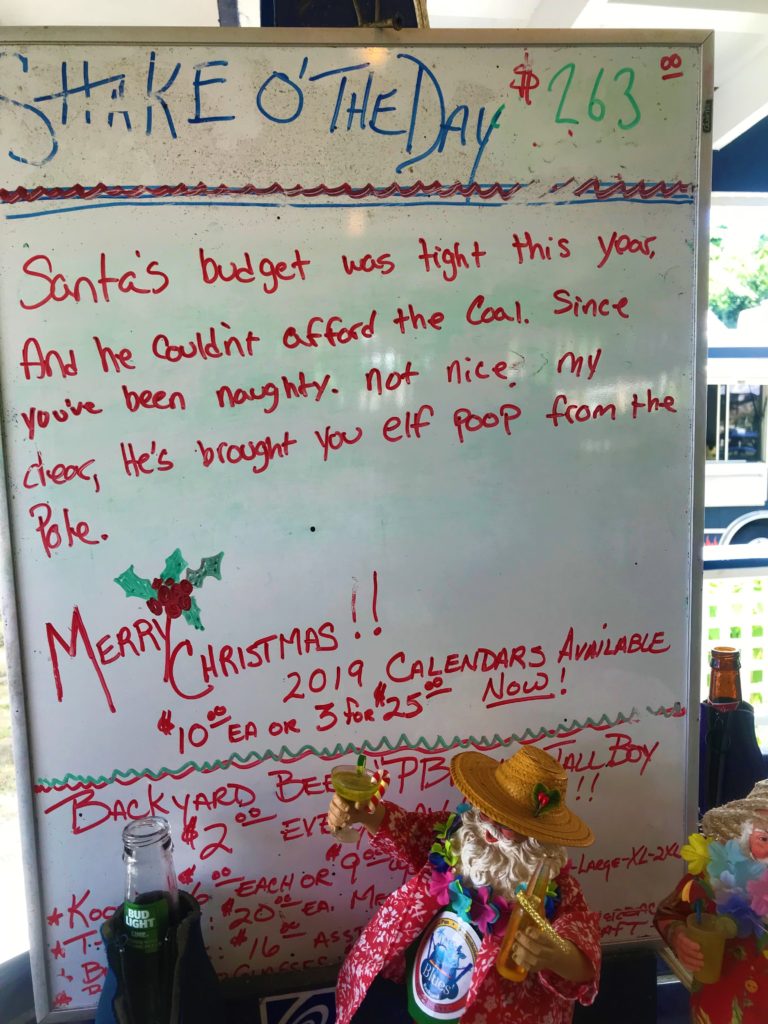 SHAKE O' THE DAY $263.00
Santa's budget was tight this year,
And he couldn't afford the Coal. Since
you've been naughty. not nice, my
dear, He's brought you elf poop from the
Pole.
MERRY CHRISTMAS!!
2019 CALENDARS AVAILABLE
$10.00 EA OR 3 FOR $25.00 NOW!
BACKYARD TALL BOY
$2.00 !!
EACH OR $9.00
-LARGE-XL-2XL
$20.00 EA.
$16.00
BUD
LIGHT
LIME
Blues